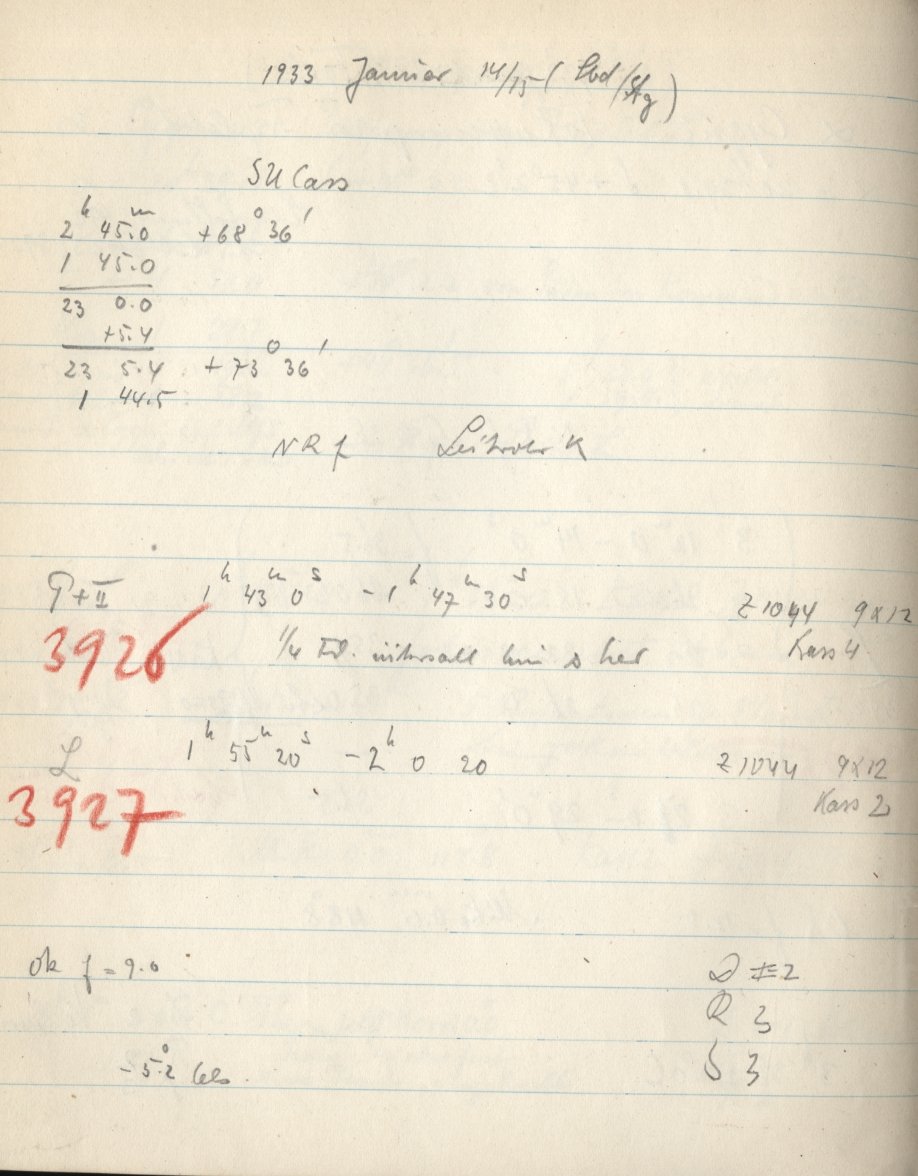 1933 Januar 14/15 (Sbd/Stg)
SU Cass
2h 45m.0 +68° 36'
1 45.0
23 0.0
+5.4
23 5.4 +73° 36'
1 44.5
NR f Leitrohr K
P+II 1h 43m 0s - 1h 47m 30s Z1044 9x12
3926 1/4 intervall hin & her Kass 4
L 1h 55m 20s - 2h 0 20 Z1044 9x12
3927 Kass 2
Ok f = 9.0 D 2
R 3
-5°.2 Cels. S 3